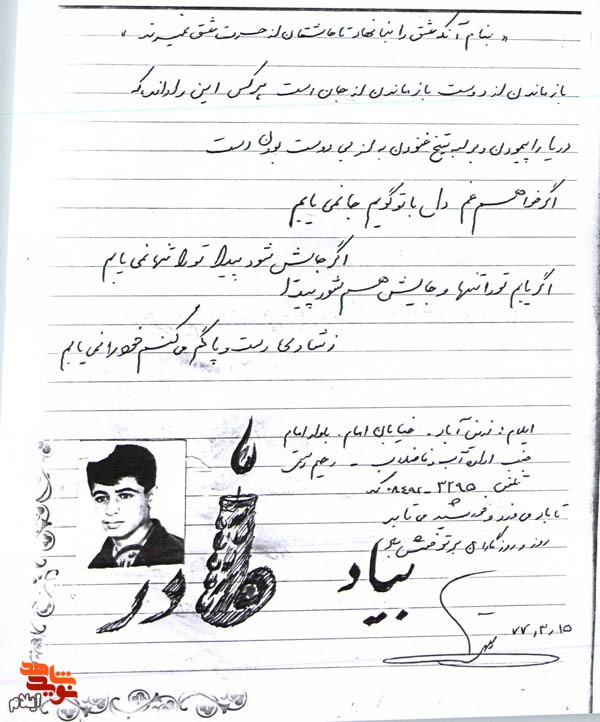 « بنام آنکه عشق را بنا نهاد تا عاشقان از حسرت عشق نمیرند »
بازماندن از دوست بازماندن از جان است هرکس این را داند که
دریا را پیمودن و بر لبه تیغ غنودن به از بی دوست بودن است
اگر خواهم غم دل با تو گویم جا نمی یابم
اگر جایش شود پیدا تو را تنها نمی یابم
اگر یابم تو را تنها و جایش هم شود پیدا
ز شادی دست و پا گم می کنم خود را نمی یابم
ایلام: زرین آباد - خیابان امام - بلوار امام
جنب اداره آب و فاضلاب - رحیم
تلفن ۳۲۹۵-۰۸۴۹۲ کد
تا باد می وزد و خورشید می تابد
روز و روزگاران بر تو خوش باد
بیاد
مادر
۷۷,۳,۱۵
نوید شاهد
ایلام